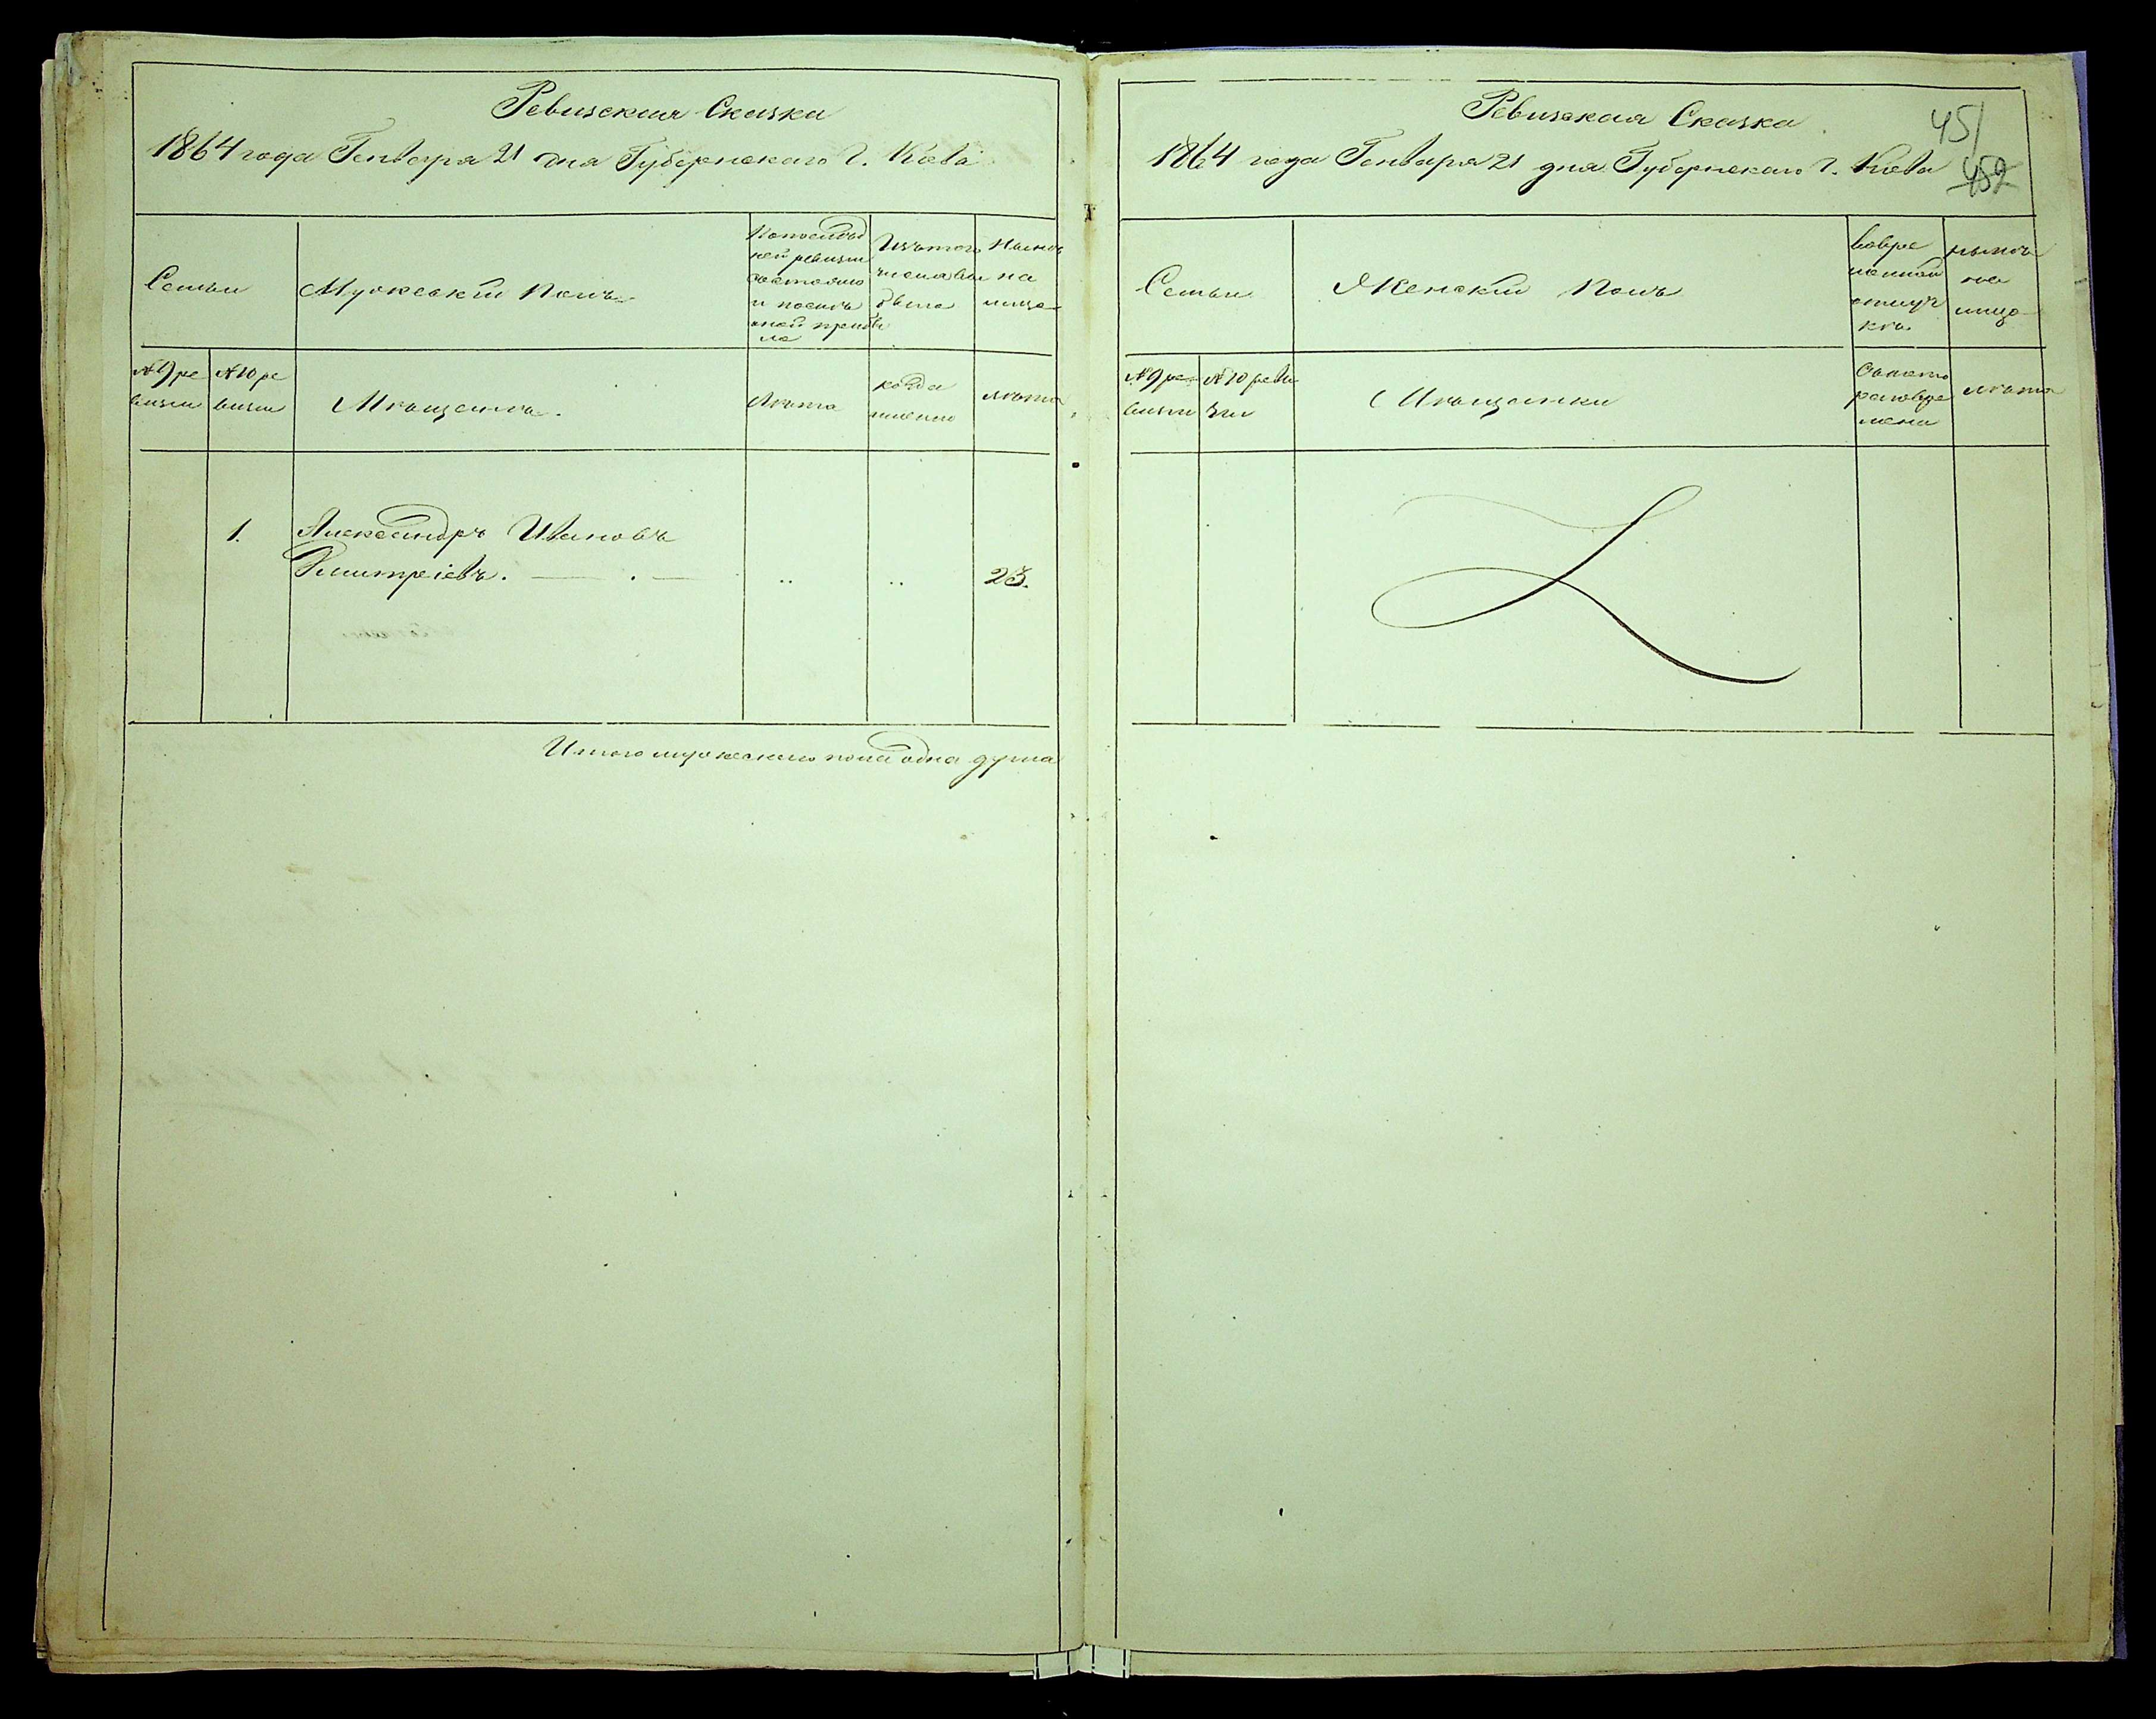 Ревизская Сказка
1864 года Генваря 21 дня Губернскаго Г. Кіева
Семьи
Мужескій Полъ
По послѣд
ней ревизіи
состояло
и послѣ
оной прибы
ло
Изъ того
числа вы
было
Нынѣ
на
лицо
№ 9 ре
визіи
№ 10 ре
визіи
Мѣщанинъ.
Лѣта
когда
имѣнно
лѣта
1.
Александръ Ивановъ
Дмитріевъ. — . — .. .. 23.
Итого мужескаго пола одна душа
Ревизская Сказка
1864 года Генваря 21 дня Губернскаго Г. Кіева
451
452
Семьи
Женскій Полъ
Вовре
менной
отлуч
кѣ.
нынѣ
на
лицо
№ 9 ре
визіи
№ 10 реви
зіи
Мѣщанки
Съ кото
раго вре
мени
лѣта